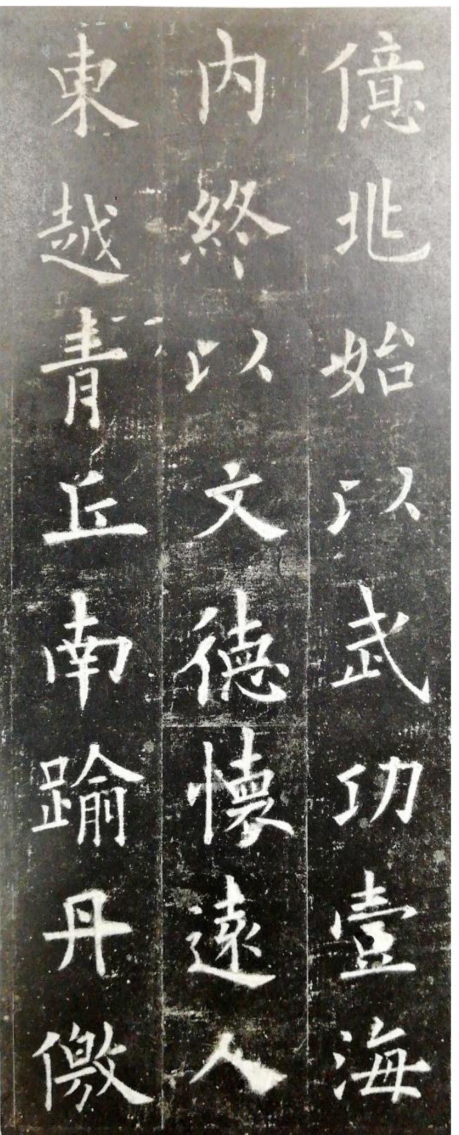 億兆始以武功壹海
内終以文德懷遠人
東越青丘南踰丹儌